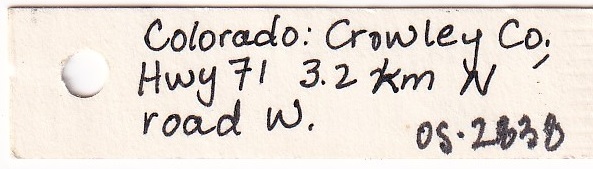 Colorado: Crowley Co.,
Hwy 71 3.2 km N
road W.
OS-2838